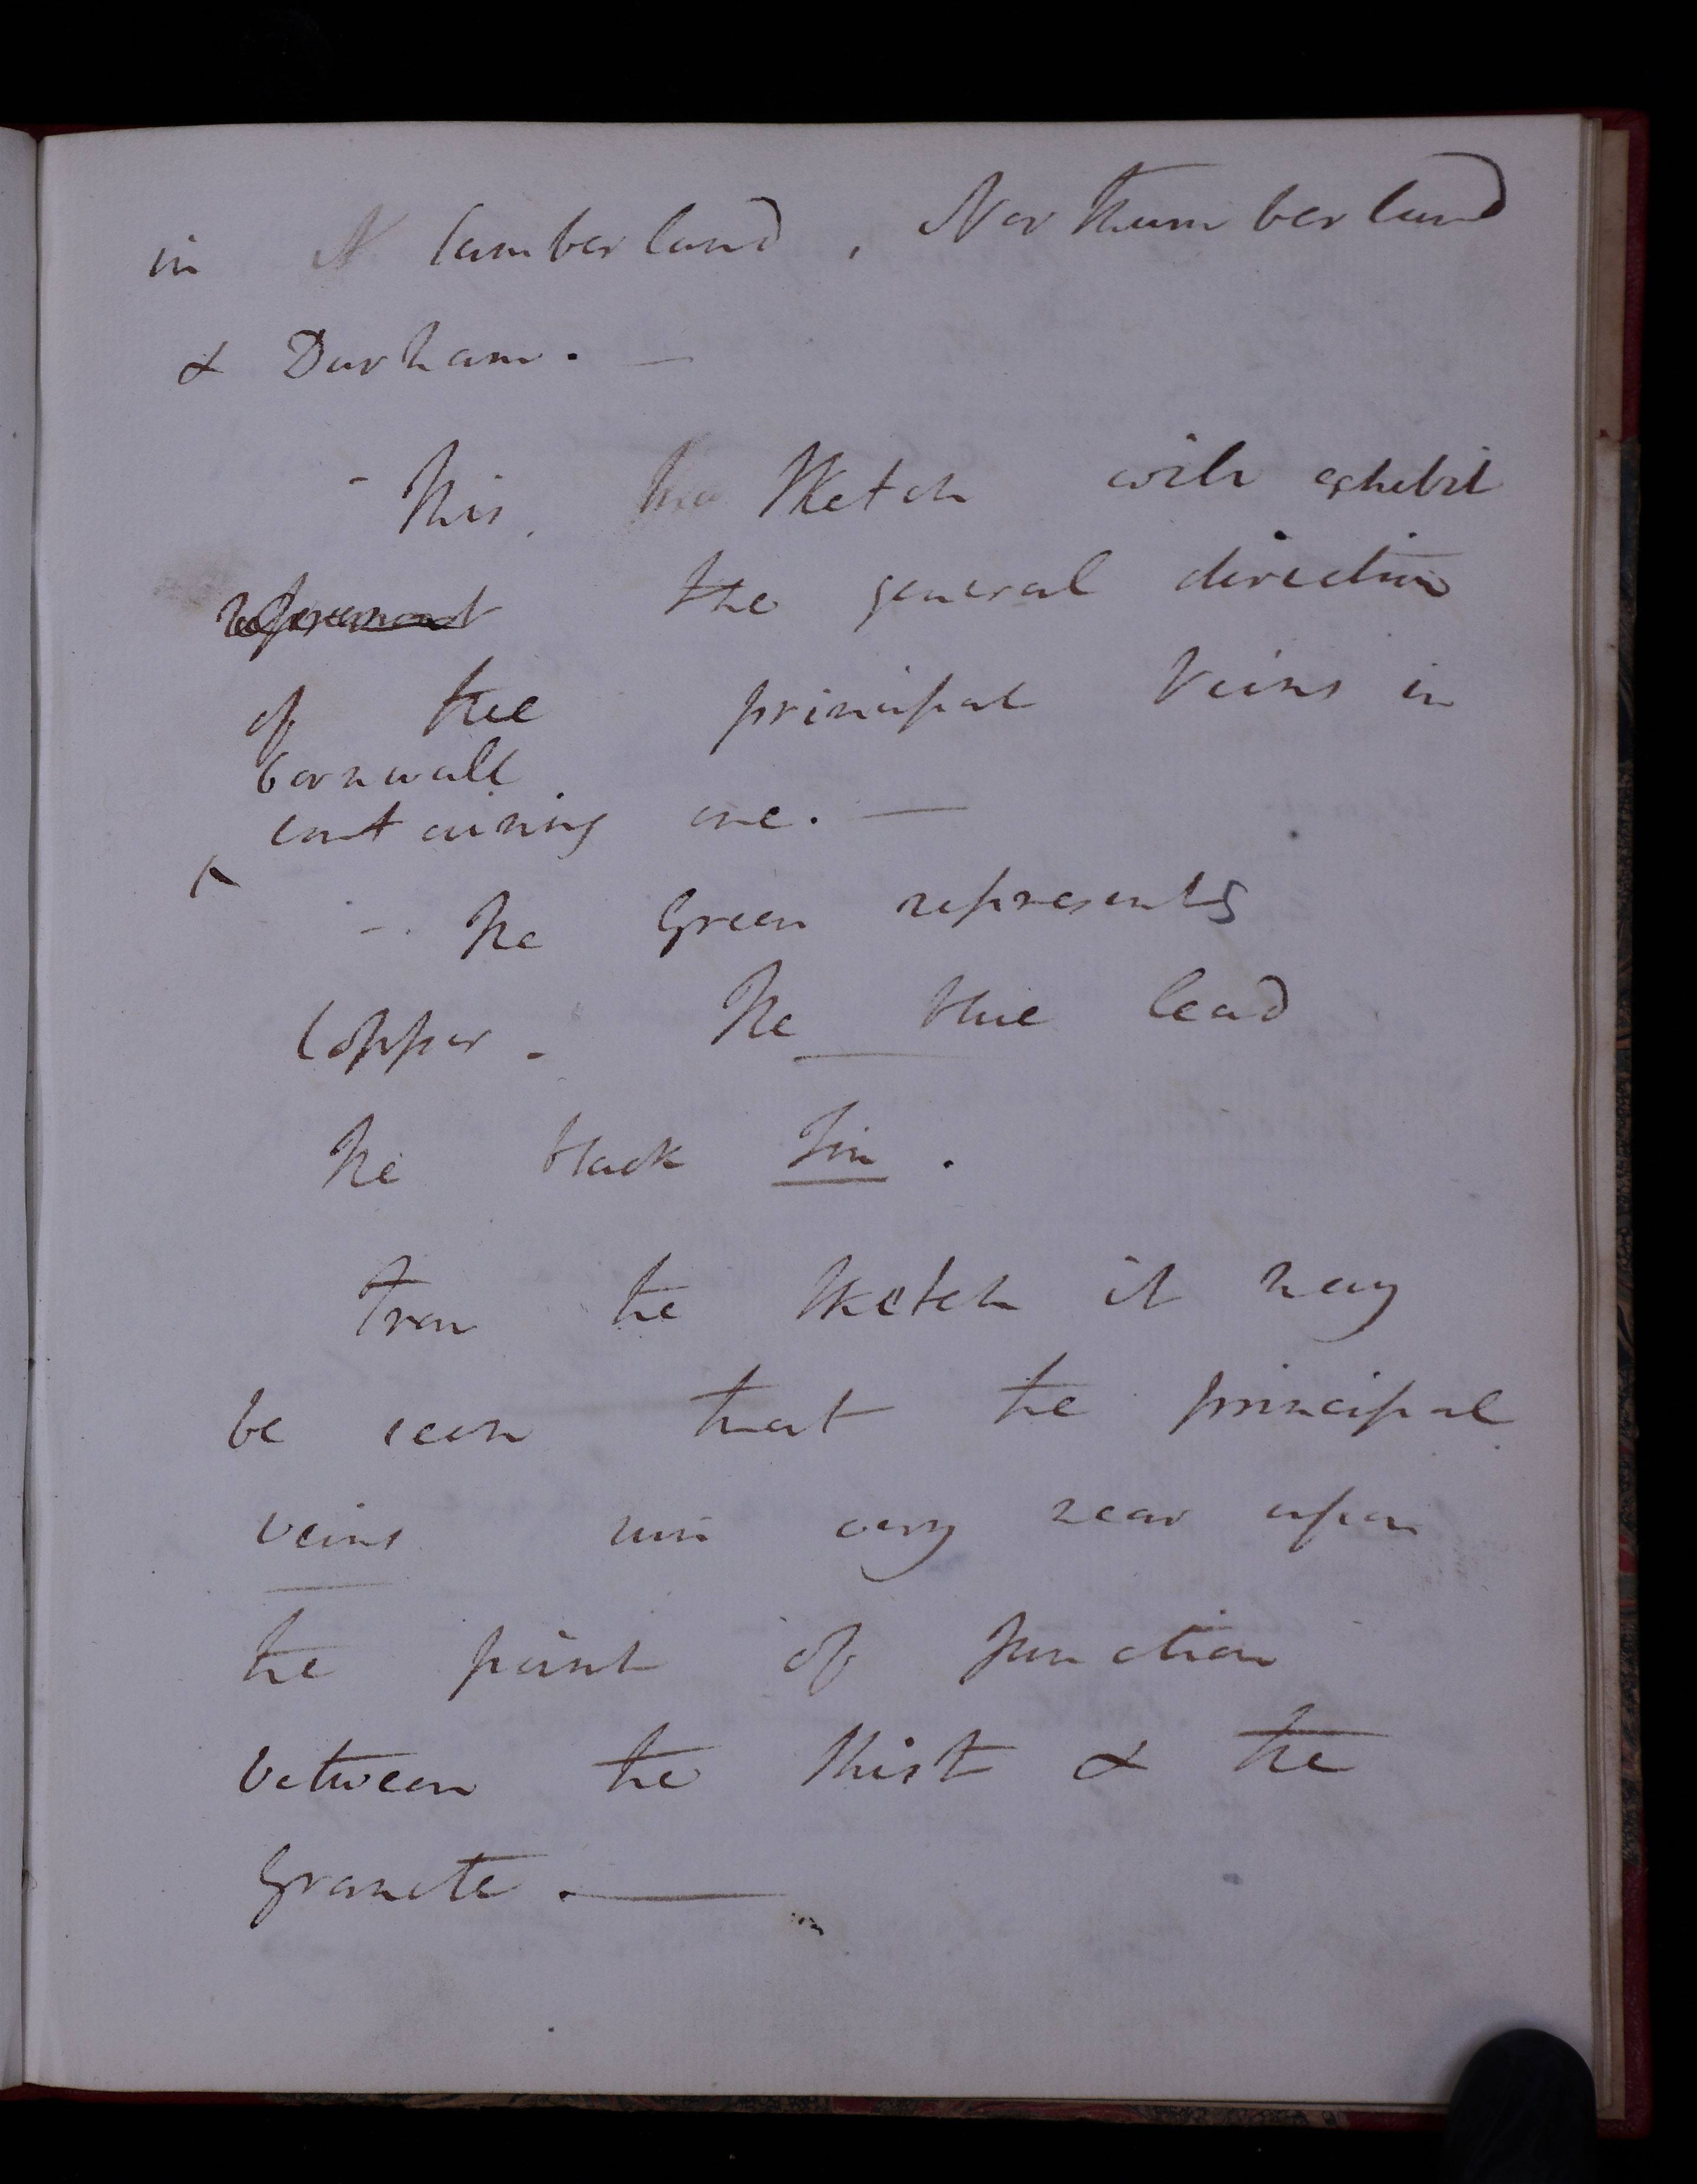 in Cumberland, Northumberland
& Durham. —
- This Sketch will exhibit
represent the general direction
of the principal veins in
Cornwall
containing ore. —
- The Green represents
Copper - The blue lead
The black Tin.
From the Sketch it may
be seen that the principal
veins run very near upon
the point of junction
between the Shist & the
Granite. —